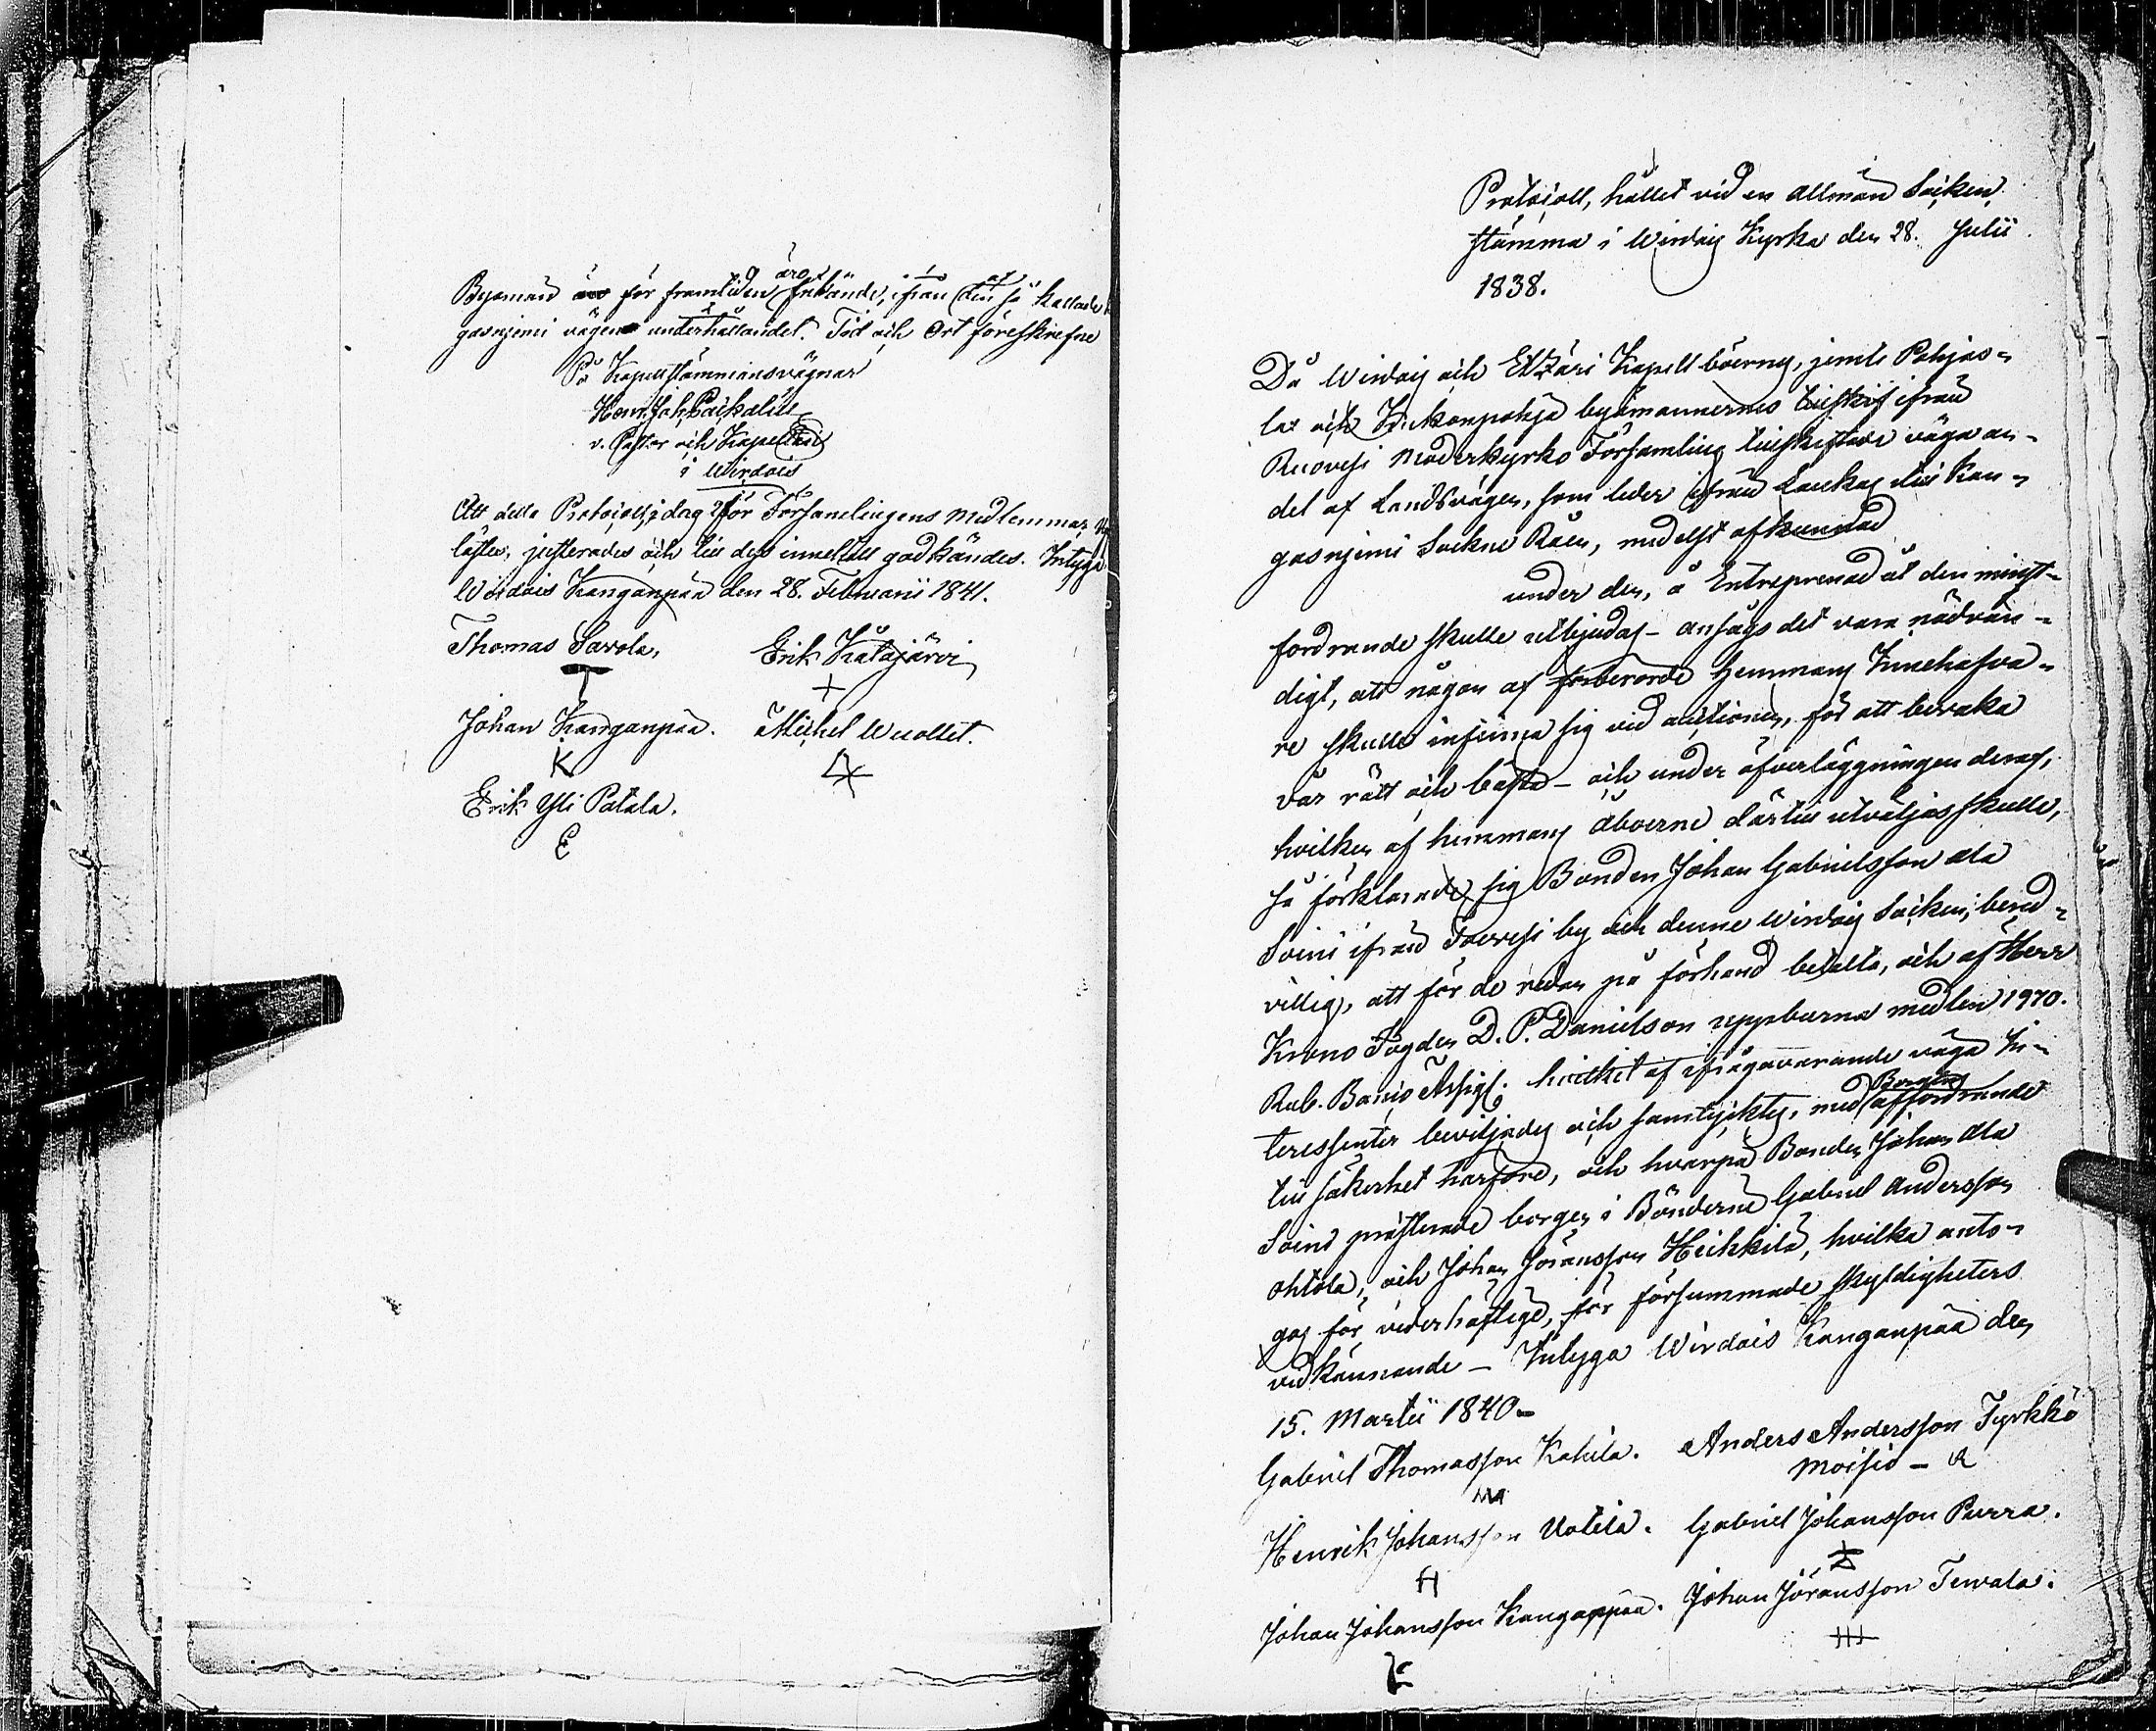 Byamän för framtiden äro frikände, ifrån den så kallade
gasniemi vägens underhållandet. Tid och Ort föreskrefne
På Kapellstämmiansvägnar
Henr. Joh.
v. Pastor och Kapellan
i Wirdois
Att detta Protocoll i dag för Församlingens medlemmar
lästes, justerades och till dess innehåll godkändes. Intyga
Wirdois Kanganpää den 28. Februarii 1841.
Thomas Savola, Erik Katajärvi
T +
Johan Kanganpää. Michel Wuollet.
K
Erik Yli Patala.
E
Protocoll, hållet vid en allmän Socken
stämma i Wirdois Kyrka den 28. Julii
1838.
Då Wirdois och Etzäri Kapell boerne, jemte Pohjas-
lax och byamännernes tillskift ifrån
Ruovesi Moderkyrko Församling tillskiftade väga an-
del af Landsvägen, som leder ifrån Laukas till Kan-
gasniemi Sockne Råen, medelst afkunnad
under den, å Entreprenad åt den minst-
fordrande skulle utbjudas - ansågs det vara nödvän-
digt, att någon af förberörde Hemmans Innehafva-
re skulle infinna sig vid auctionen, för att bevaka
vår rätt och bästa - och under öfverläggningen deraf,
hvilken af hemmans åboerne därtill utväljas skulle,
så förklarade sig Bonden Johan Gabrielsson Ala
Soini ifrån by och denne Wirdois Socken, bered-
villig, att för de redan på förhand betalta, och af Herr
Krono Fogden D. P. Danielson uppburna medlen 1970.
Rub. Banco Assign: hvilket af ifrågavarande väga In-
teressenter beviljades och samtycktes, med Borgens affordrande
till säkerhet härföre, och hvarpå Bonden Johan Ala
Soini presterade borgen i Bönderne Gabriel Andersson
Ohtola, och Johan Jöransson Heikkilä, hvilka anto-
gos för vederhäftige, för försummade skyldigheters
vidkännande - Intyga Wirdois Kanganpää den
15. Martii 1840 -
Gabriel Thomasson Kahila. Anders Andersson Tyrkkö
Moisio - A
Henrik Johansson Uotila. Gabriel Johansson Purra.
H
Johan Johansson Kangaspää. Johan Jöransson Tewala.